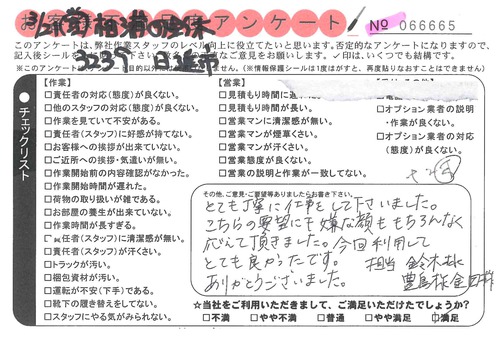 お客様アンケート
No 066665
このアンケートは、弊社作業スタッフのレベル向上に役立てたいと思います。否定的なアンケートになりますので、
✓印は、いくつでも結構です。
(※情報保護シールは1度がはすと、再度貼りなおすことはできません)
チェックリスト
【作業】
□責任者の対応(態度)が良くない。
□他のスタッフの対応(態度)が良くない。
□作業を見ていて不安がある。
□責任者(スタッフ)に好感が持てない。
□お客様への挨拶が出来ていない。
□ご近所への挨拶・気遣いが無い。
□作業開始前の内容確認がなかった。
□作業開始時間が遅れた。
□荷物の取り扱いが雑である。
□お部屋の養生が出来ていない。
□作業時間が長すぎる。
□責任者(スタッフ)に清潔感が無い。
□責任者(スタッフ)が汗くさい。
□トラックが汚い。
□梱包資材が汚い。
□運転が不安(下手)である。
□靴下の履き替えをしてない。
□スタッフにやる気がみられない。
【営業】
□見積もり時間に遅
□見積もり時間が長い。
□営業マンに清潔感が無い。
□営業マンが煙草くさい。
□営業マンが汗くさい。
□営業態度が良くない。
□営業の説明と作業が一致してない。
□オプション業者の説明
・作業が良くない。
□オプション業者の対応
(態度)が良くない。
その他、ご意見・ご要望等ありましたらお書き下さい。
とても丁寧に仕事をして下さいました。
こちらの要望にも嫌な顔ももちろんなく
応えて頂きました。今回利用して
とても良かったです。
担当 鈴木様
ありがとうございました。
豊島様
☆当社をご利用いただきまして、ご満足いただけたでしょうか?
□不満 □やや不満 □普通 □やや満足 □満足